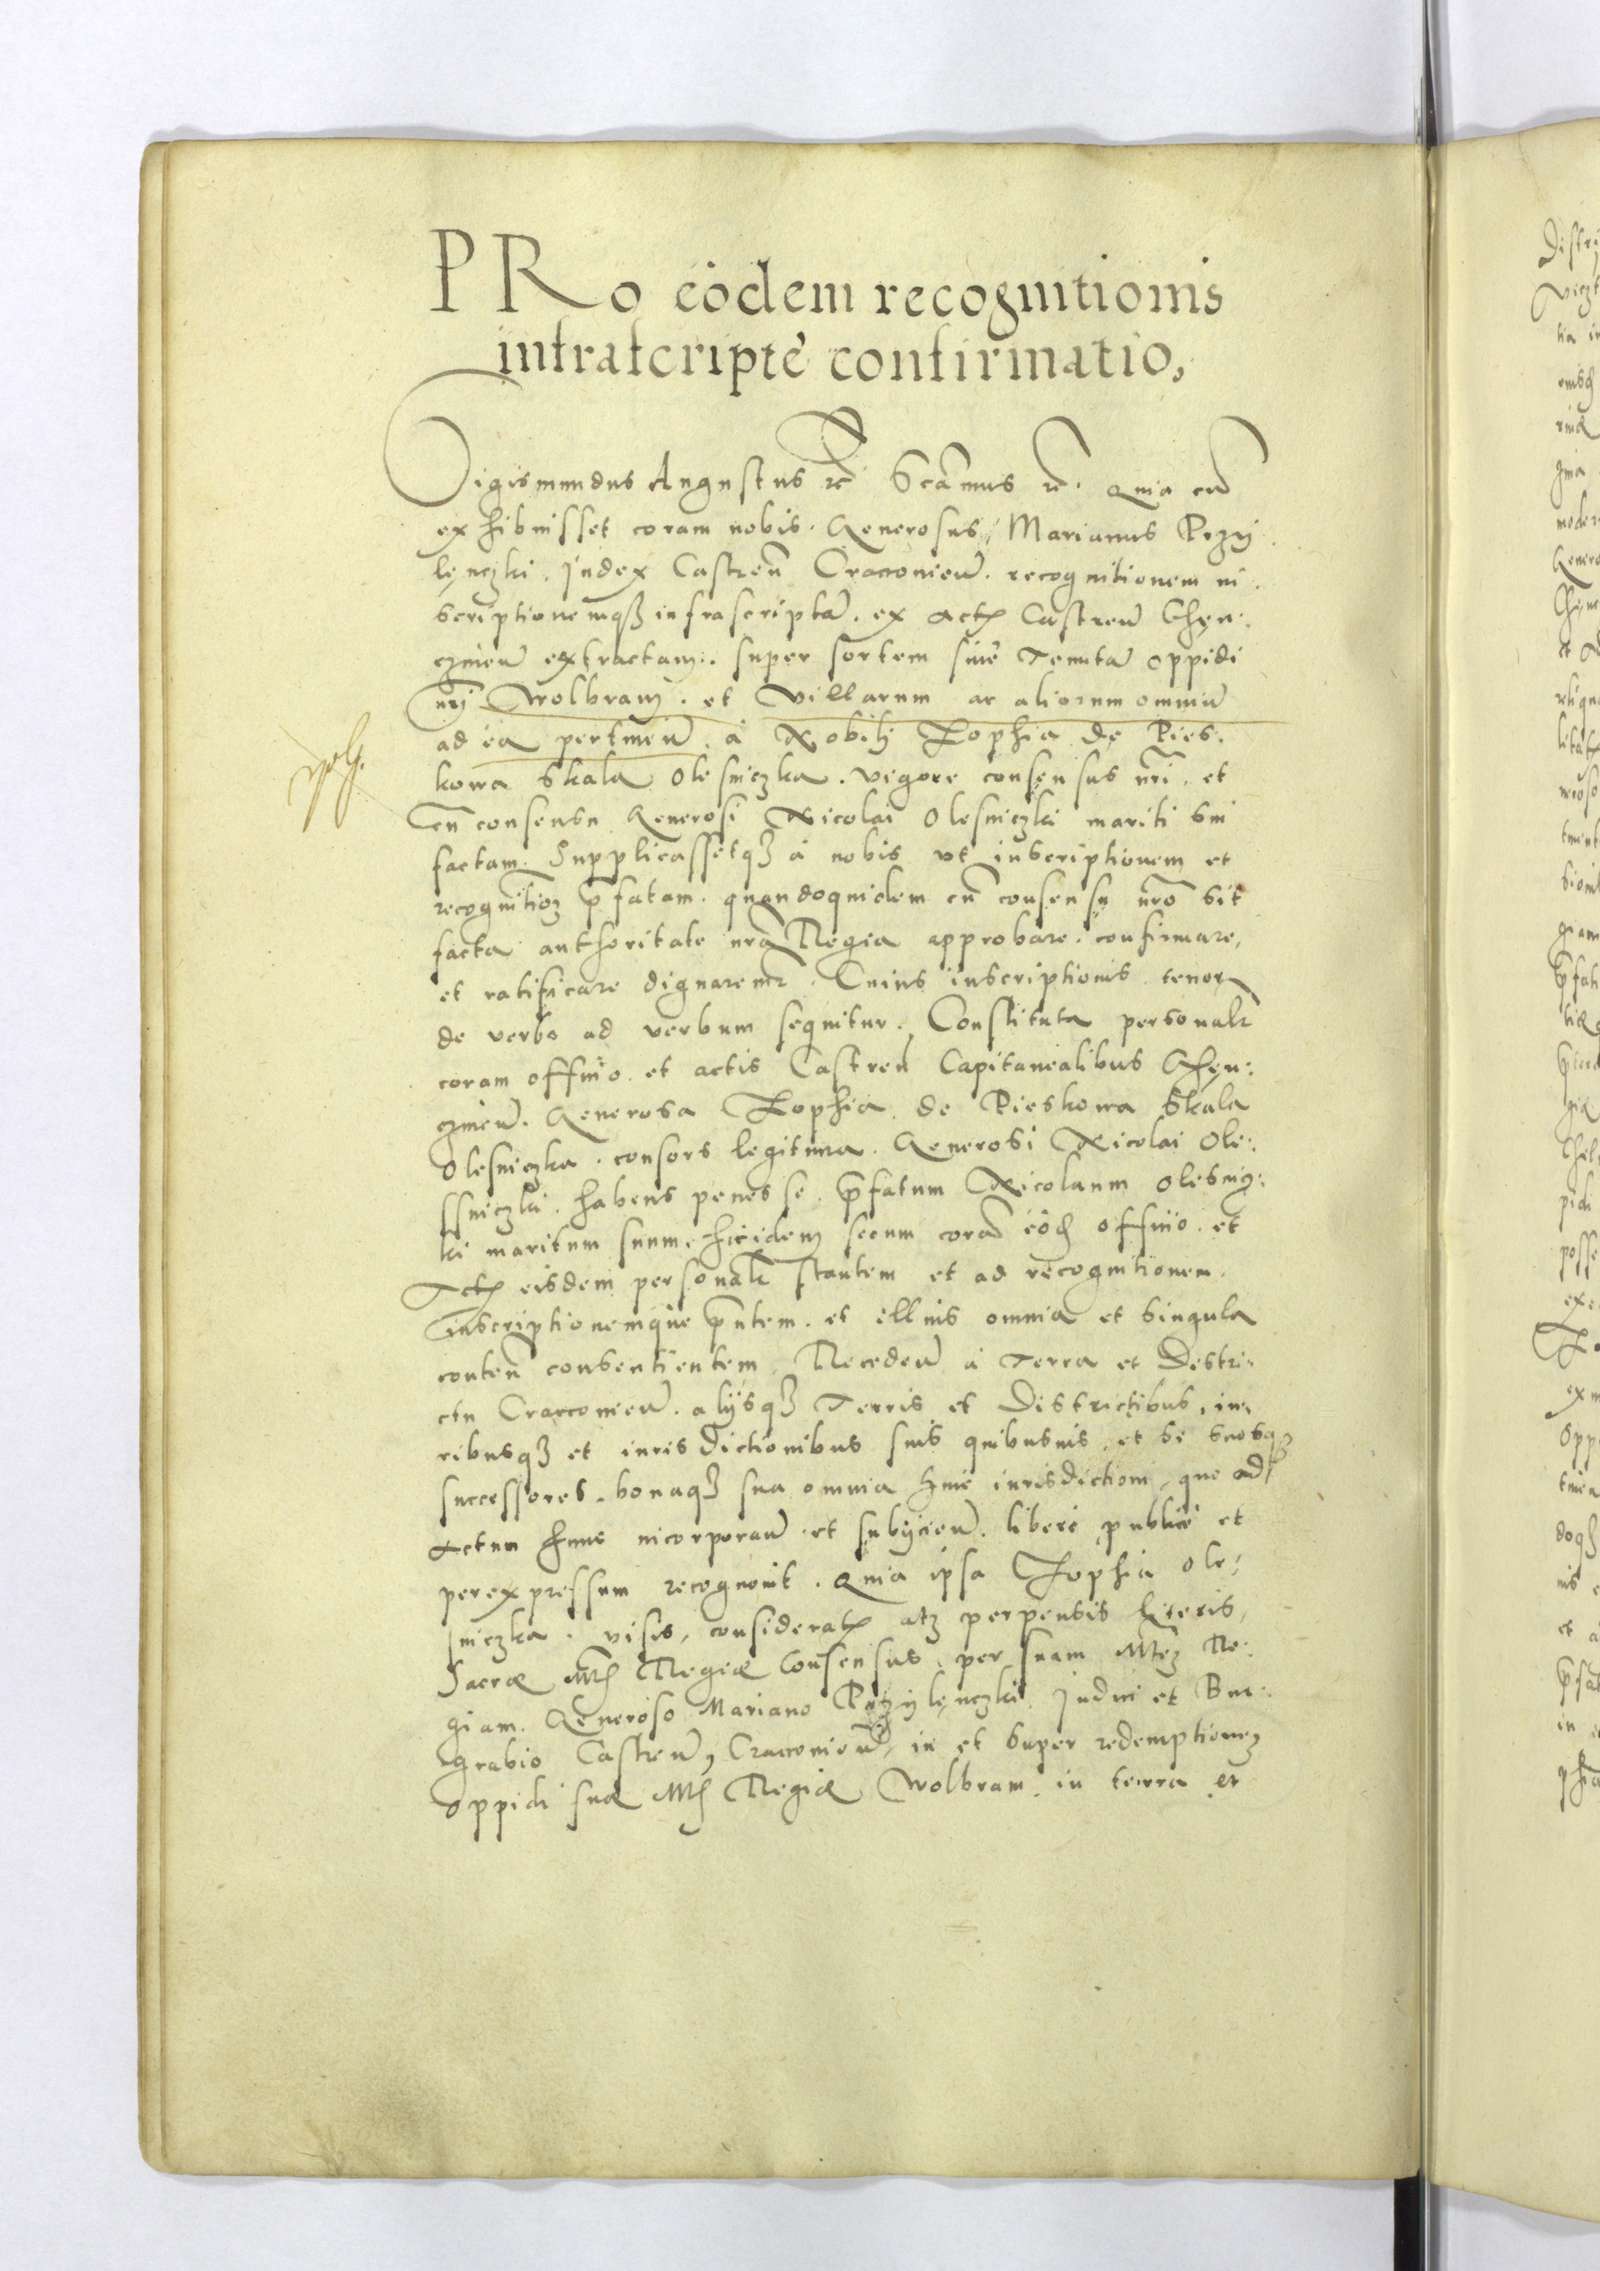 PRo eodem recognitionis
infrascripte confirmatio,
Sigismundus Augustus rc̄ Scām̄us rc̄. Quia cū
exhibuisset coram nobis. Generosus, Marianus Przy
lęczki. Judex Castreñ Cracovieñ. recognitionem in
scriptionemqꝫ infrascriptā. ex Actꝭ Castreñ Chęn:
czineñ extractam. super sortem siue Tenutā oppidi
nri Wolbram. et Villarum ac aliorum omniū
ad ea pertineñ. à Nobili Zophia de Pies.
kowa Skala Olesniczka. vigore consensus nr̄i. et
cū consensu Generosi Nicolai Olesniczki mariti sui
factam. Supplicassetqꝫ à nobis vt inscriptionem et
recognitioꝫ p̄fatam. quandoquidem cū consensu nr̄o sit
facta authoritate nr̄a Regia approbare. confirmare,
et ratificare dignaremr. Cuius inscriptionis tenor
de verbo ad verbum sequitur. Constituta personalr
coram officio. et actis Castreñ Capitanealibus Chęn:
czineñ. Generosa Zophia de Pieskowa Skala
Olesniczka. consors legitima. Generosi Nicolai Ole:
ssniczki. habens penes se. p̄fatum Nicolaum Olesnicz:
ki maritum suum. ibidem secum corā eod officio. et
Actꝭ eisdem personalr stantem et ad recognitionem.
inscriptionemque p̄ntem. et illius omnia et singula
conteñ consentientem. Recedeñ à Terra et Distri:
ctu Cracovieñ. alijsqꝫ Terris et Districtibus, iu,
ribusqꝫ et iurisdictionibus suis quibusuis, et se suosqꝫ
successores. bonaqꝫ sua omnia huic iurisdictioni, quo ad
Actum hunc incorporañ. et subijcieñ. liberè publicè et
perexpressum recognouit. Quia ipsa Zophia Ole,
sniczka. visis, consideratꝭ atqꝫ perpensis literis,
Sacræ Mtꝭ Regiæ Consensus, per suam Mtēꝫ Re:
giam. Generoso Mariano Przylęczki. Judici et Bur:
grabio Castreñ, Cracovieñ, in et super redemptioneꝫ
oppidi suæ Mtꝭ Regiæ Wolbram. in terra et